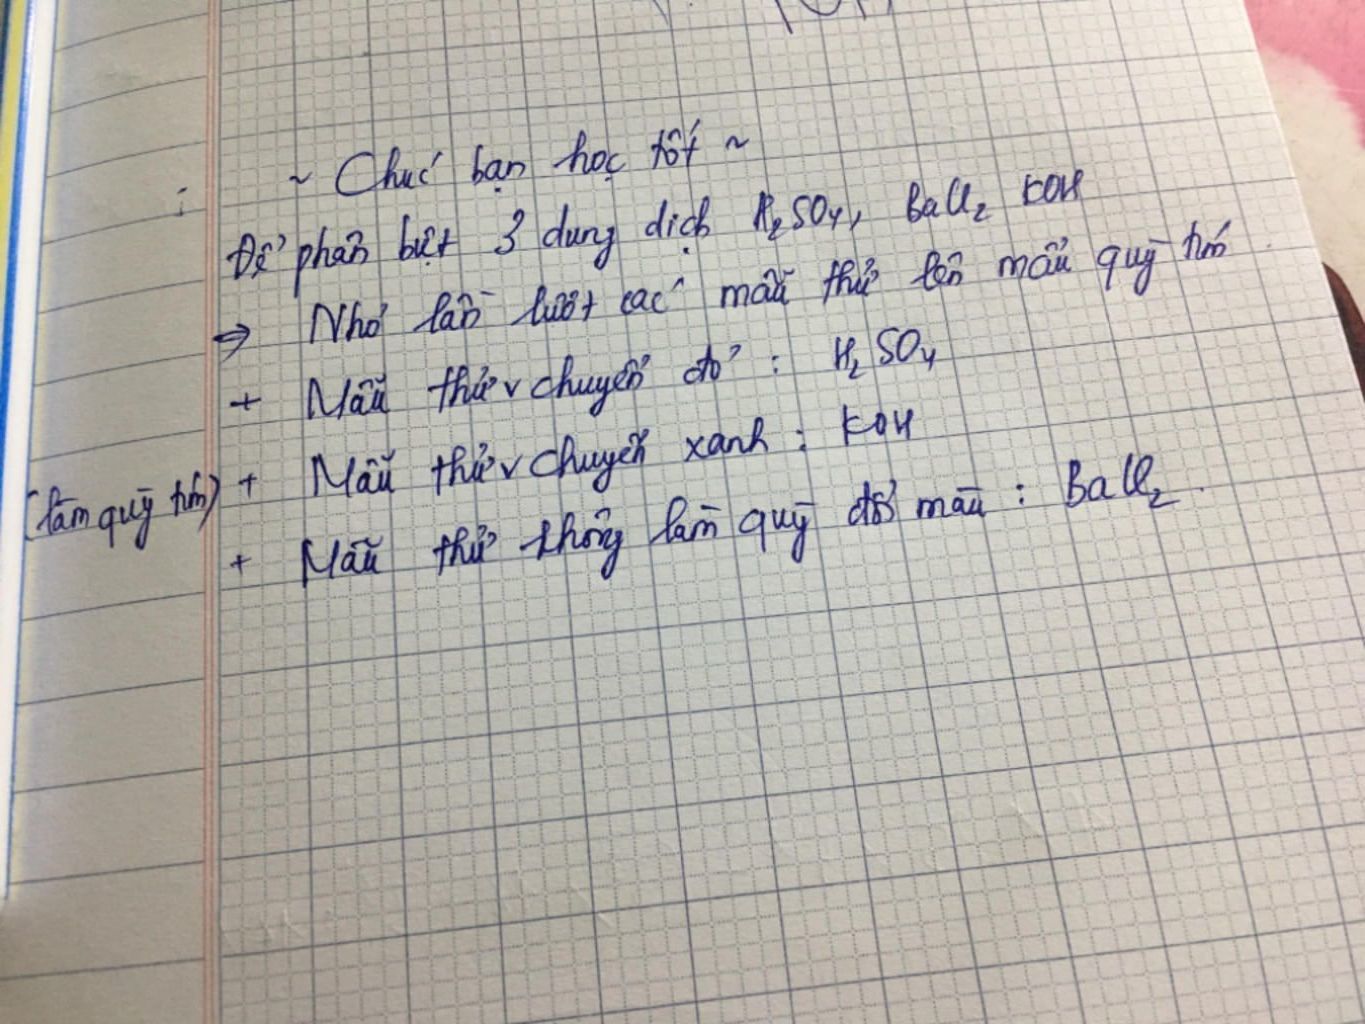 ~ Chúc bạn học tốt ~
Để phân biệt 3 dung dịch H₂SO₄, BaCl₂ KOH
⇒ Nhỏ lần lượt các mẫu thử lên mẩu quỳ tím
+ Mẫu thử v chuyển đỏ : H₂SO₄
+ Mẫu thử v chuyển xanh : KOH
(làm quỳ tím)
+ Mẫu thử không làm quỳ đổi màu : BaCl₂.